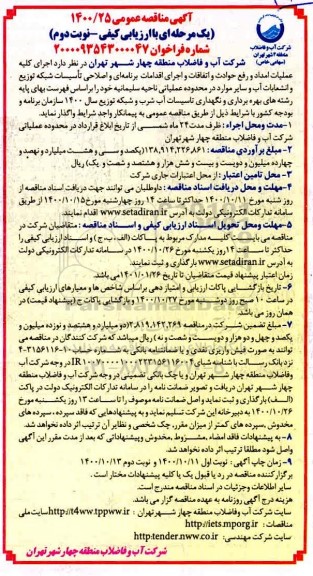 آگهی مناقصه عمومی ۱۴۰۰/۲۵
(یک مرحله ای با ارزیابی کیفی -نوبت دوم)
شماره فراخوان ۲۰۰۰۰۹۳۵۴۳۰۰۰۰۴۷
شرکت آب و فاضلاب
منطقه ۴ شهر تهران
(سهامی خاص)
شرکت آب و فاضلاب منطقه چهار شهر تهران در نظر دارد اجرای کلیه
عملیات امداد و رفع حوادث و اتفاقات و اجرای اقدامات برنامه‌ای و اصلاحی تأسیسات شبکه توزیع
و انشعابات آب و سایر موارد در محدوده عملیاتی ناحیه سلیمانیه خود را براساس فهرست بهای پایه
رشته های بهره برداری و نگهداری تاسیسات آب شرب و شبکه توزیع سال ۱۴۰۰ سازمان برنامه و
بودجه کشور با شرایط ذیل از طریق مناقصه عمومی به پیمانکار واجد شرایط واگذار نماید.
۱-مدت ومحل اجراء : ظرف مدت ۲۴ ماه شمسی از تاریخ ابلاغ قرارداد در محدوده عملیاتی
شرکت آب و فاضلاب منطقه چهار شهر تهران
۲-مبلغ برآوردی مناقصه : ۱۳۸,۹۱۴,۲۲۶,۸۶۱ (یکصد و سی و هشت میلیارد و نهصد و
چهارده میلیون و دویست و بیست و شش هزار و هشتصد و شصت و یک) ریال
۳-محل تامین اعتبار : از محل اعتبارات جاری شرکت
۴-مهلت و محل دریافت اسناد مناقصه : داوطلبان می توانند جهت دریافت اسناد مناقصه از
روز شنبه مورخ ۱۴۰۰/۱۰/۱۱ حداکثر تا ساعت ۱۴ روز چهارشنبه مورخ ۱۴۰۰/۱۰/۱۵ از طریق
سامانه تدارکات الکترونیکی دولت به آدرس www.setadiran.ir اقدام نمایند.
۵-مهلت ومحل تحویل اسناد ارزیابی کیفی و اسناد مناقصه : متقاضیان شرکت در
مناقصه می بایست کلیه مدارک مربوط به پاکات (الف،ب،ج) و اسناد ارزیابی کیفی را
حداکثر تا ساعت ۱۴ روز یکشنبه مورخ ۱۴۰۰/۱۰/۲۶ در سامانه تدارکات الکترونیکی دولت
به آدرس www.setadiran.ir بارگذاری و ثبت نمایند.
زمان اعتبار پیشنهاد قیمت متقاضیان تا تاریخ ۱۴۰۱/۰۱/۲۶ می باشد.
۶-تاریخ بازگشایی پاکات ارزیابی و امتیاز دهی براساس شاخص ها و معیارهای ارزیابی کیفی
در ساعت ۱۰ صبح روز دوشنبه مورخ ۱۴۰۰/۱۰/۲۷ و بازگشایی پاکات ج (پیشنهاد قیمت) در
همان روز می باشد.
۷-مبلغ تضمین شرکت در مناقصه ۲,۸۱۹,۱۴۲,۲۶۹ (دو میلیارد و هشتصد و نوزده میلیون و
یکصد و چهل و دو هزار و دویست و شصت و نه) ریال میباشد که شرکت کنندگان در مناقصه می
توانند به صورت فیش واریزی نقدی و یا ضمانتنامه بانکی به شماره حساب
نزد بانک رسالت با شناسه شبای در وجه شرکت آب
وفاضلاب منطقه چهار شهر تهران و یا چک بانکی تضمینی در وجه شرکت آب و فاضلاب منطقه
چهار شهر تهران دریافت و تصویر ضمانت نامه را در سامانه تدارکات الکترونیک دولت در پاکت
(الف) بارگذاری و ثبت نماید و اصل ضمانت نامه موصوف را تا ساعت ۱۳ روز یکشنبه مورخ
۱۴۰۰/۱۰/۲۶ به دبیرخانه این شرکت تسلیم نماید و به پیشنهادهایی که فاقد سپرده، سپرده های
مخدوش، سپرده های کمتر از میزان مقرر، چک شخصی و نظایر آن ترتیب اثر داده نخواهد شد.
۸-به پیشنهادات فاقد امضاء، مشروط، مخدوش و پیشنهاداتی که بعد از مدت مقرر این آگهی
واصل شود مطلقا ترتیب اثر داده نخواهد شد.
۹-زمان چاپ آگهی : نوبت اول ۱۴۰۰/۱۰/۱۱ و نوبت دوم ۱۴۰۰/۱۰/۱۳
برگزار کننده مناقصه در رد یا قبول یک یا کلیه پیشنهادات مختار است.
سایر اطلاعات وجزئیات در اسناد مناقصه مندرج است.
هزینه درج آگهی روزنامه به عهده مناقصه گزار می باشد.
سایت شرکت آب و فاضلاب منطقه چهار شهر تهران : http://t4ww.tppww.ir سایت ملی
مناقصات : http://iets.mporg.ir
سایت شرکت مهندسی: http:tender.nww.co.ir
شرکت آب و فاضلاب منطقه چهار شهر تهران